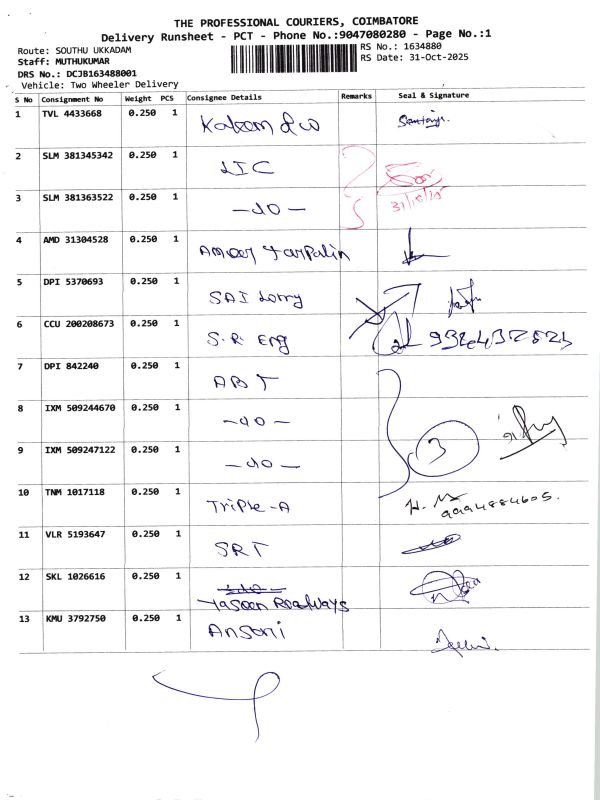 THE PROFESSIONAL COURIERS, COIMBATORE
Delivery Runsheet - PCT - Phone No.:9047080280 - Page No.:1
Route: SOUTHU UKKADAM
RS No.: 1634880
Staff: MUTHUKUMAR
RS Date: 31-Oct-2025
DRS No.: DCJB163488001
Vehicle: Two Wheeler Delivery
S No Consignment No Weight PCS Consignee Details Remarks Seal & Signature
1 TVL 4433668 0.250 1
2 SLM 381345342 0.250 1 LIC
3 SLM 381363522 0.250 1 -do- 31/10/25
4 AMD 31304528 0.250 1 Ameer Tarpalin
5 DPI 5370693 0.250 1 SAI Lorry
6 CCU 200208673 0.250 1 S.R. Eng
7 DPI 842240 0.250 1 ABT
8 IXM 509244670 0.250 1 -do-
9 IXM 509247122 0.250 1 -do- 3
10 TNM 1017118 0.250 1 Triple-A 9994884605.
11 VLR 5193647 0.250 1 SRT
12 SKL 1026616 0.250 1 Yaseen Roadways
13 KMU 3792750 0.250 1 Ansoni